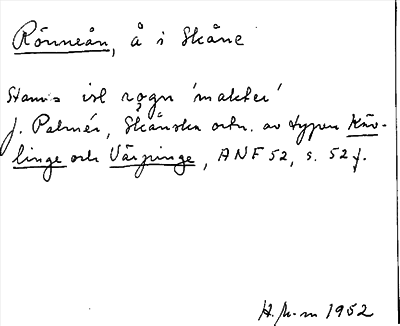 Rönneån, å i Skåne
Stams isl rogn 'makter'
J. Palmér, Skånska ortn. av typen Käv-
linge och Värpinge, ANF 52, s. 52 f.
H. 1952